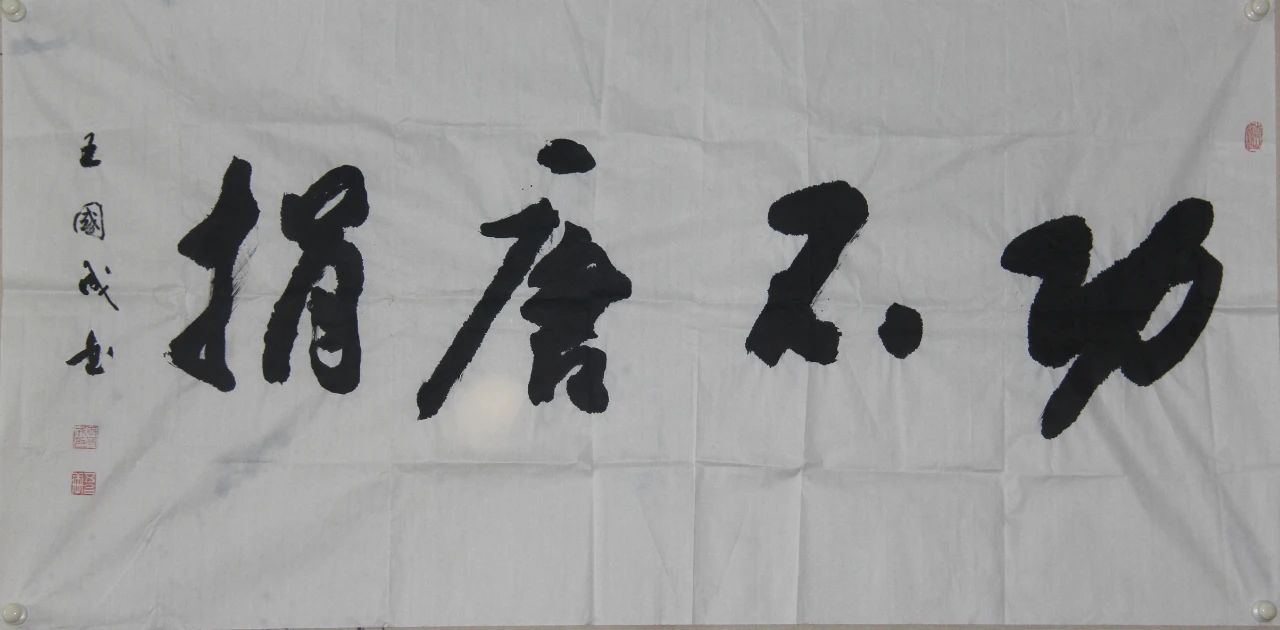 功不唐捐
王國成书